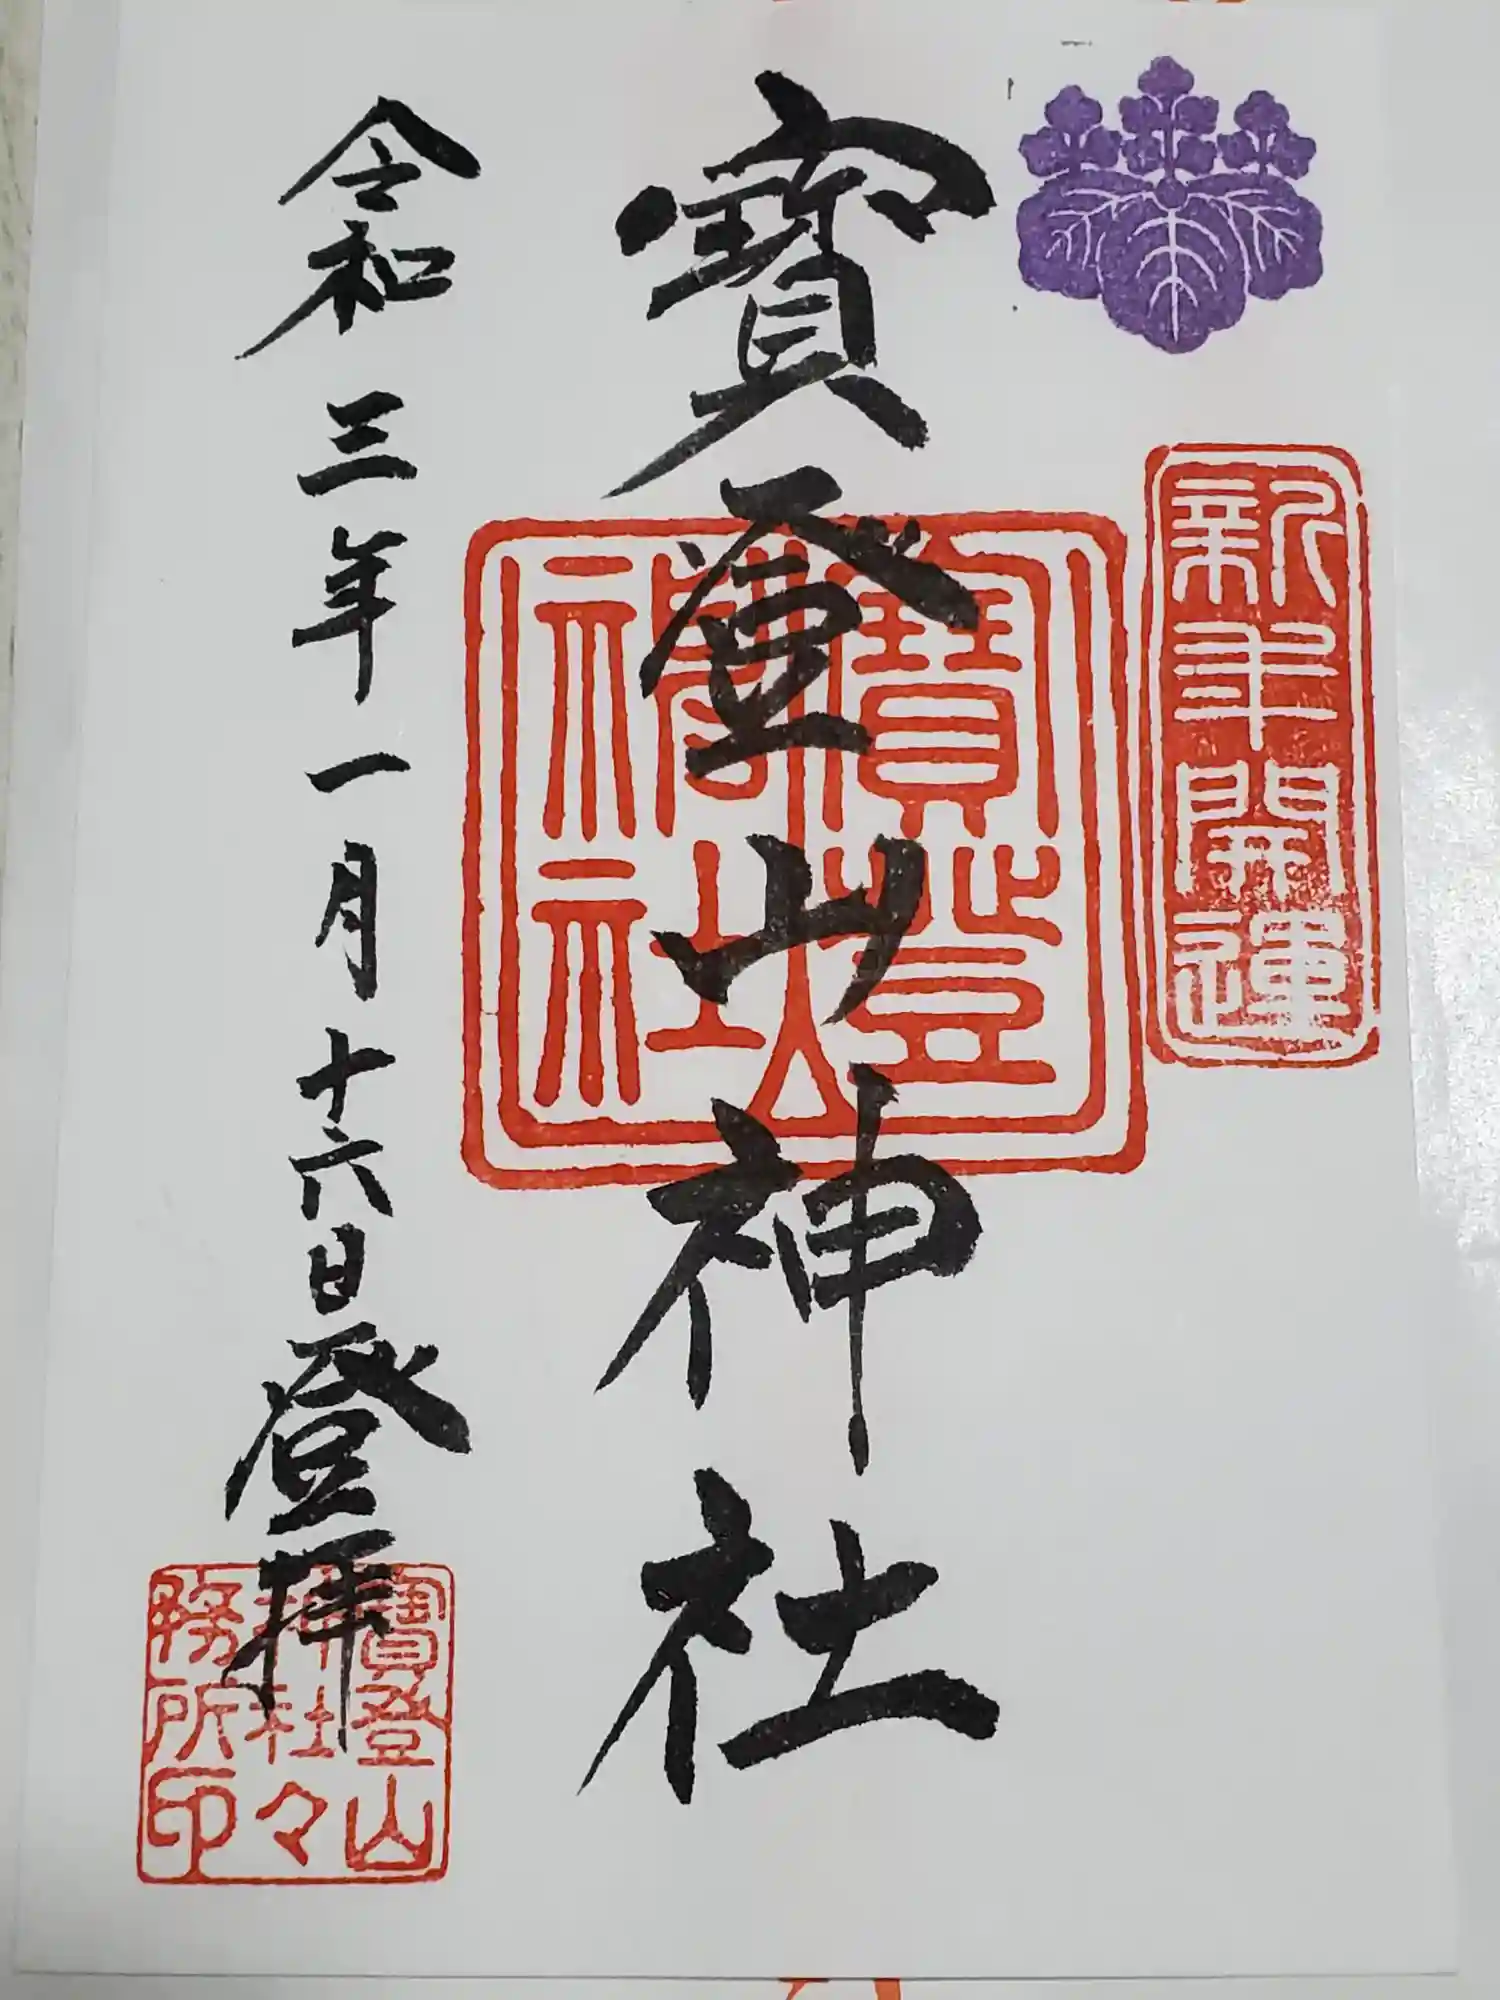 新年開運
寳登山神社
寳登山神社
令和三年一月十六日登拝
寳登山
神社々
務所印